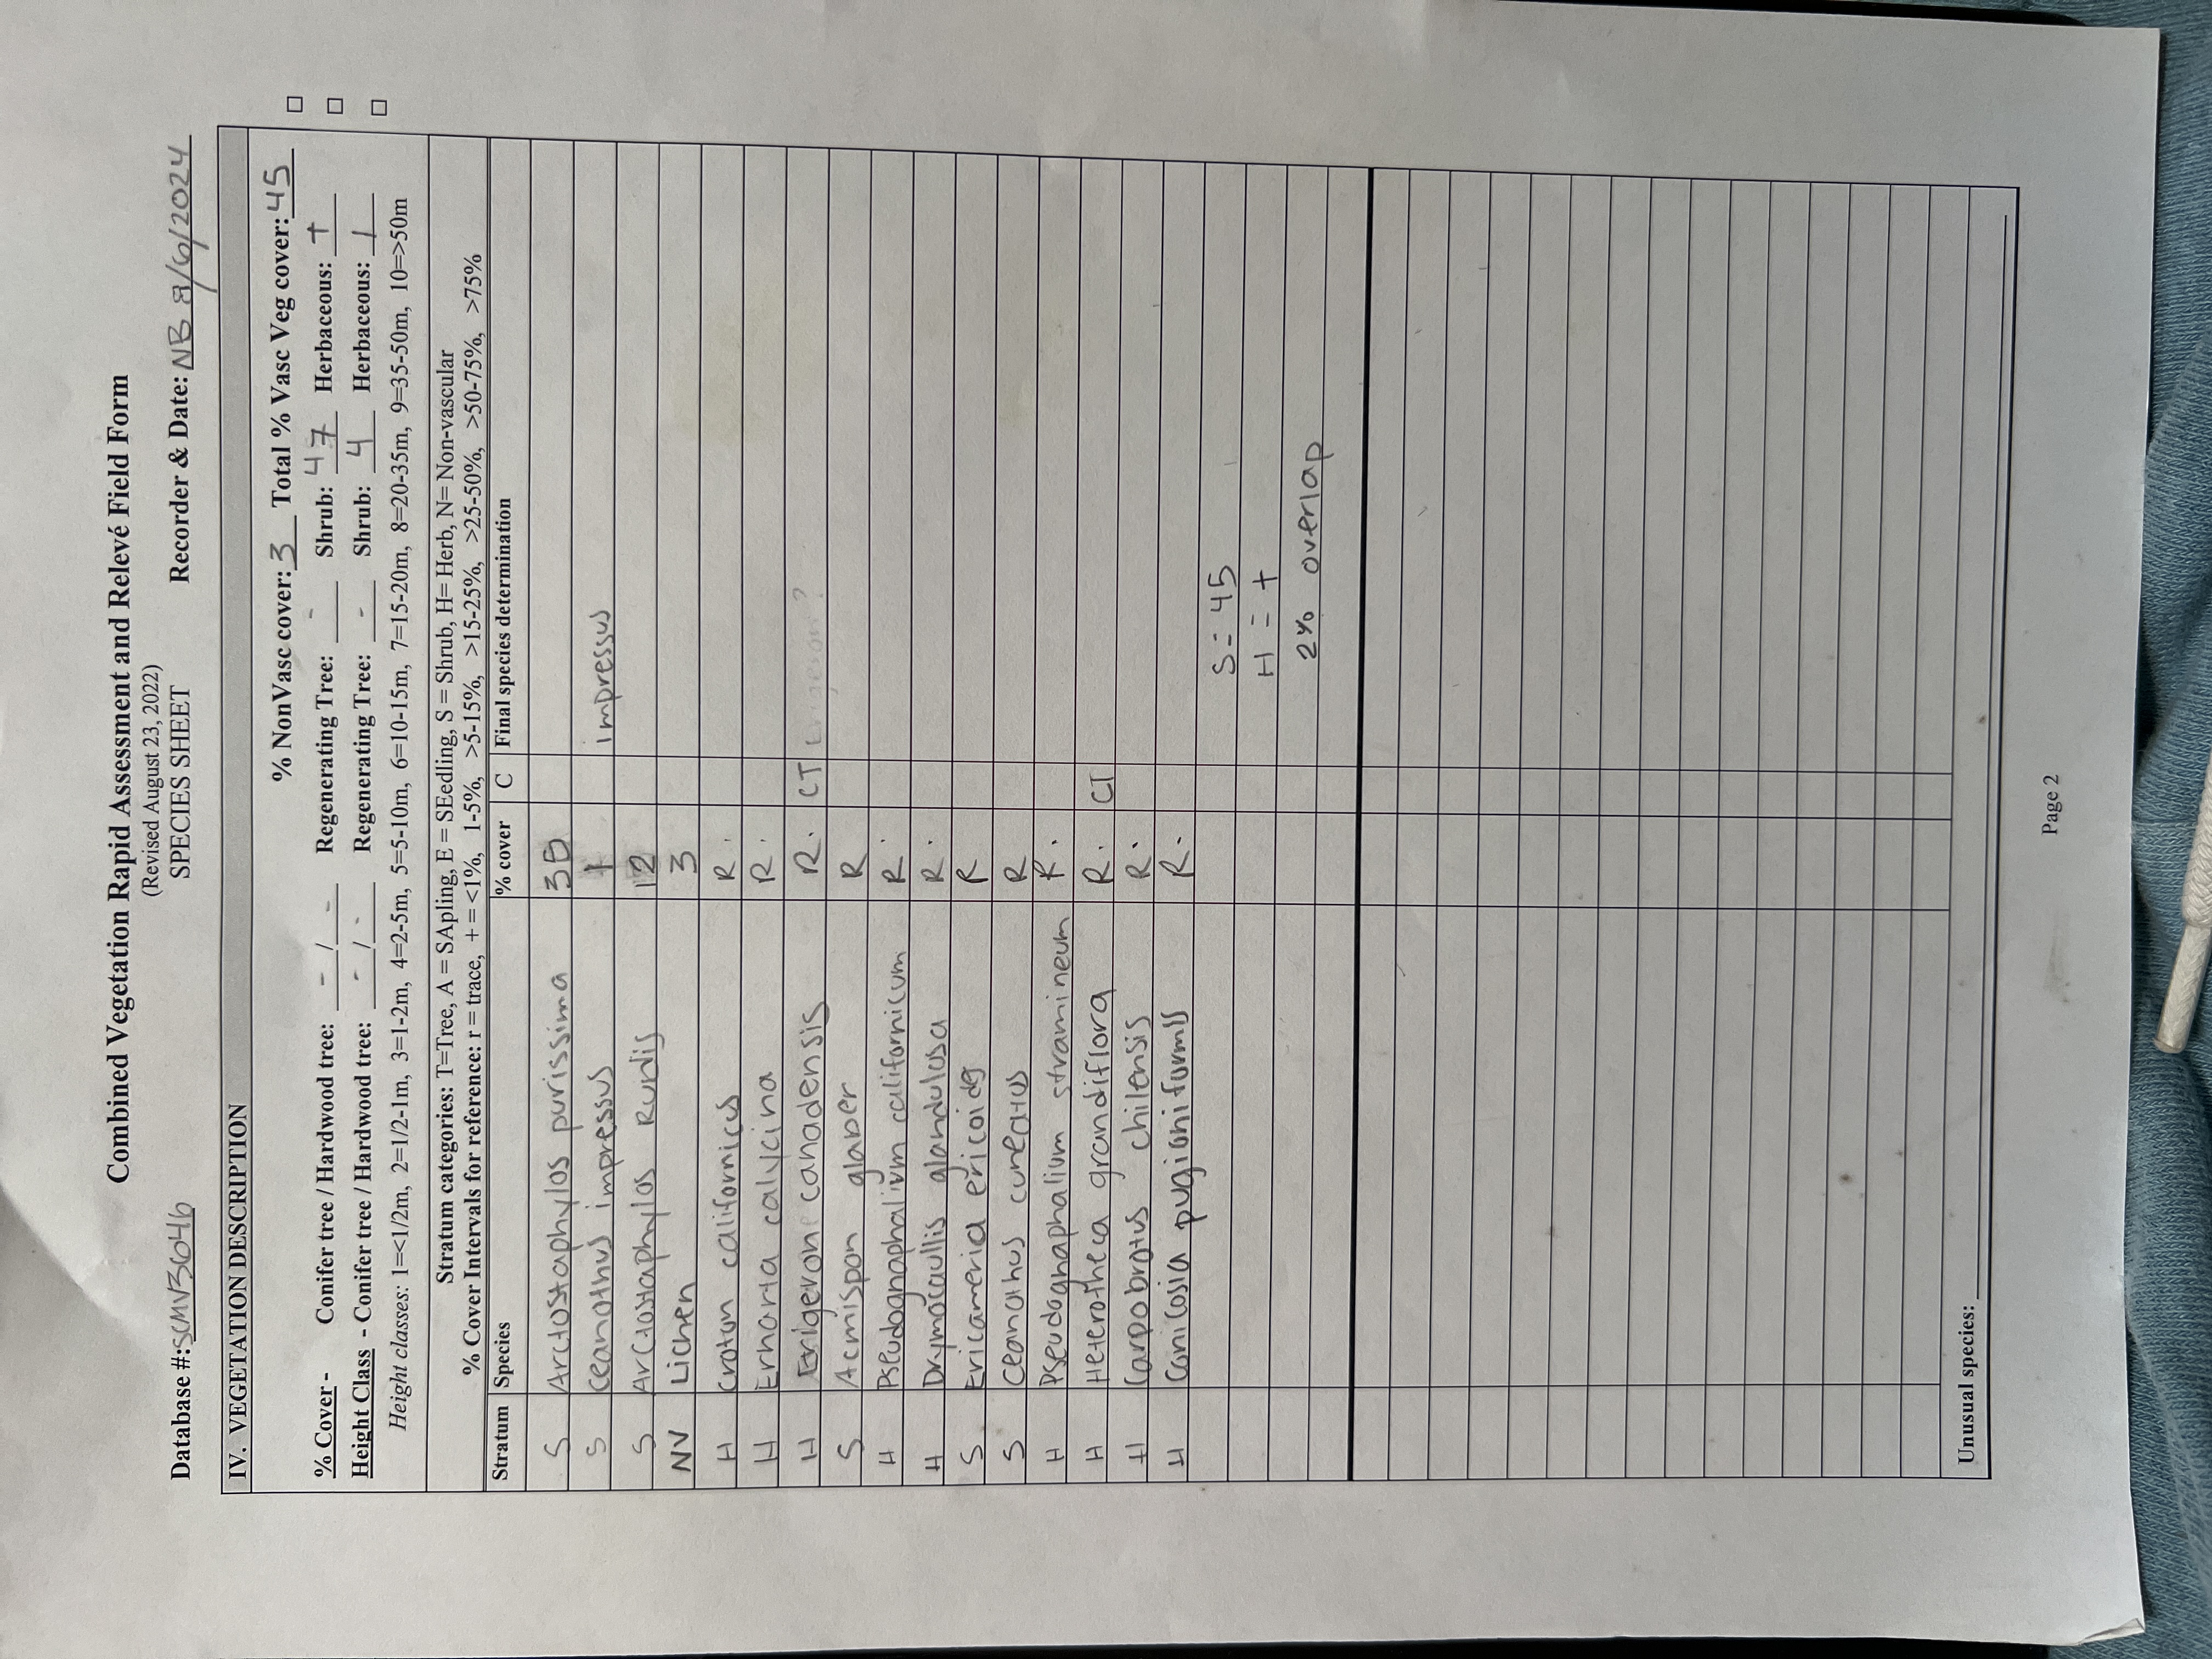 Combined Vegetation Rapid Assessment and Relevé Field Form
(Revised August 23, 2022)
SPECIES SHEET
Database #: SCMV3G046 Recorder & Date: NB 8/6/2024
IV. VEGETATION DESCRIPTION
% NonVasc cover: 3 Total % Vasc Veg cover: 45
% Cover - Conifer tree / Hardwood tree: - / - Regenerating Tree: - Shrub: 47 Herbaceous: +
Height Class - Conifer tree / Hardwood tree: - / - Regenerating Tree: - Shrub: 4 Herbaceous: 1
Height classes: 1=<1/2m, 2=1/2-1m, 3=1-2m, 4=2-5m, 5=5-10m, 6=10-15m, 7=15-20m, 8=20-35m, 9=35-50m, 10=>50m
Stratum categories: T=Tree, A = SApling, E = SEedling, S = Shrub, H= Herb, N= Non-vascular
% Cover Intervals for reference: r = trace, + = <1%, 1-5%, >5-15%, >15-25%, >25-50%, >50-75%, >75%
Stratum Species % cover C Final species determination
S Arctostaphylos purissima 35
S Ceanothus impressus + impressus
S Arctostaphylos Rudis 12
NV Lichen 3
H Croton californicus R.
H Erharta calycina R.
H Erigeron canadensis R. CT Erigeron?
S Acmispon glaber R
H Pseudognaphalium californicum R.
H Drymocallis glandulosa R.
S Ericameria ericoides R
S Ceanothus cuneatus R
H Pseudognaphalium stramineum R.
H Heterotheca grandiflora R. CT
H Carpobrotus chilensis R.
H Conicosia pugioniformis R.
S = 45
H = +
2% overlap
Unusual species:
Page 2